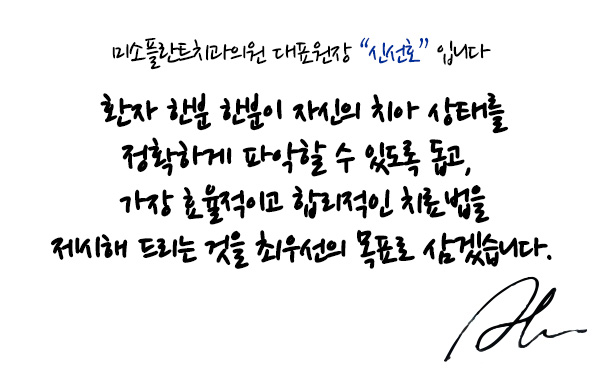 미소플란트치과의원 대표원장 “신선호” 입니다
환자 한분 한분이 자신의 치아 상태를
정확하게 파악할 수 있도록 돕고,
가장 효율적이고 합리적인 치료법을
제시해 드리는 것을 최우선의 목표로 삼겠습니다.